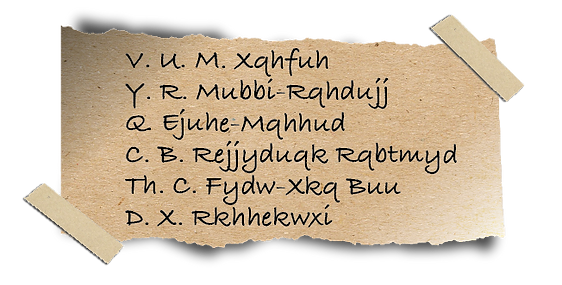 V. U. M. Xqhfuh
Y. R. Mubbi-Rqhdujj
Q. Ejuhe-Mqhhud
C. B. Rejjyduqk Rqbtmyd
Th. C. Fydw-Xkq Buu
D. X. Rkhhekwxi